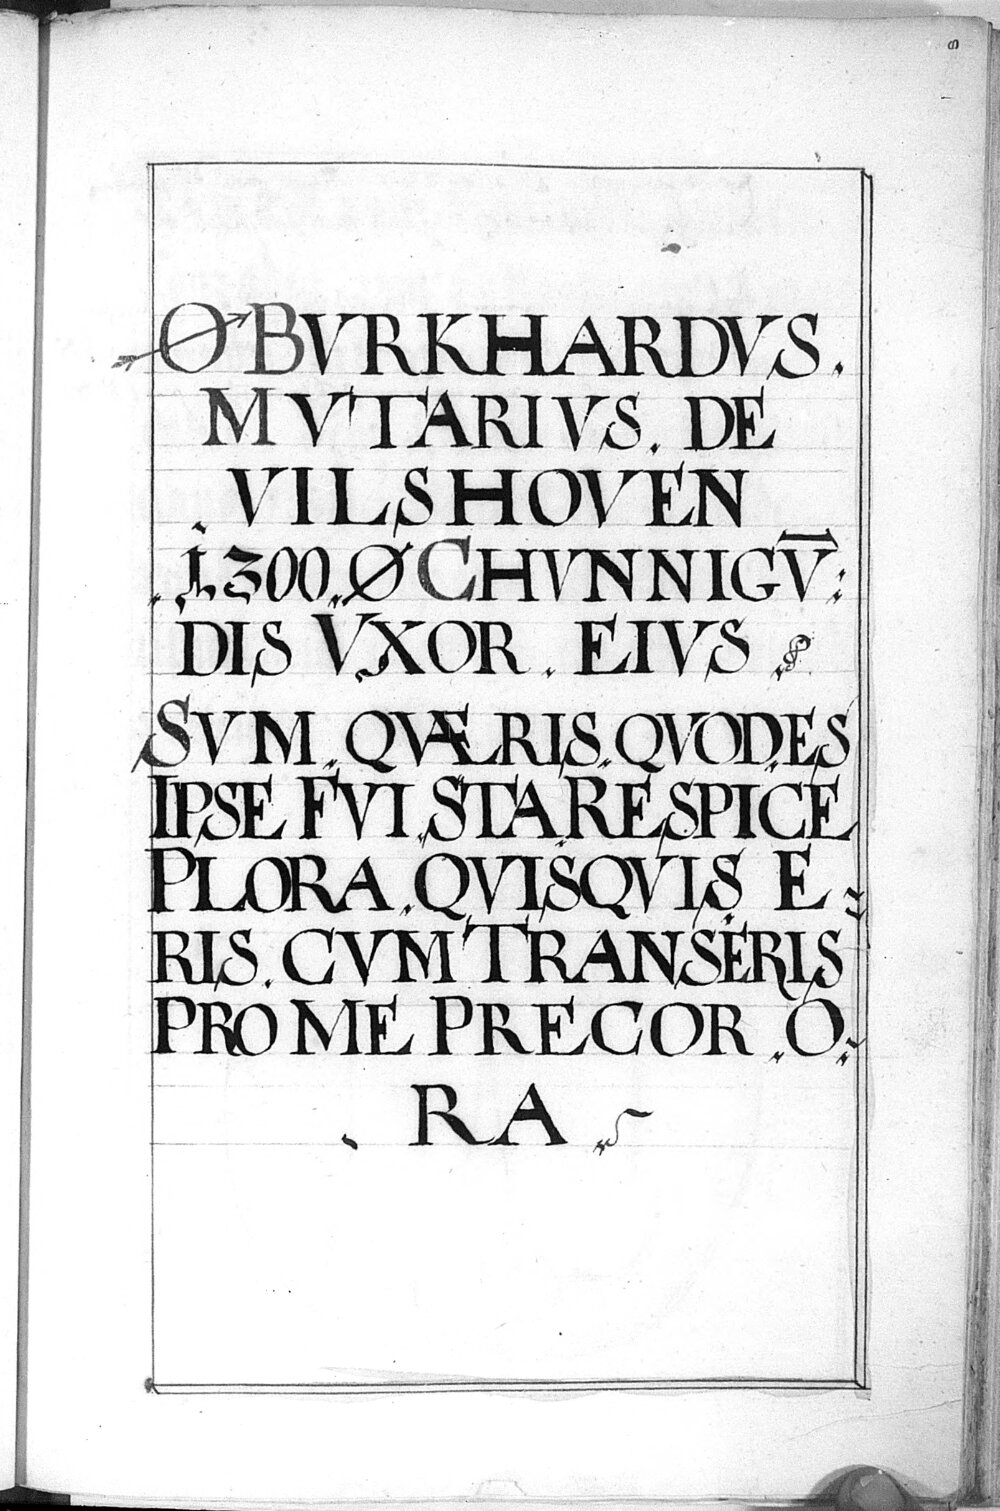 8
Ø BVRKHARDVS.
MVTARIVS. DE
VILSHOVEN
.1300. Ø CHVNNIGV̅:
DIS VXOR. EIVS
SVM. QVÆRIS. QVOD. ES
IPSE FVI. STA. RESPICE
PLORA. QVISQVIS E=
RIS. CVM TRANSERIS
PRO ME PRECOR. O=
. RA.